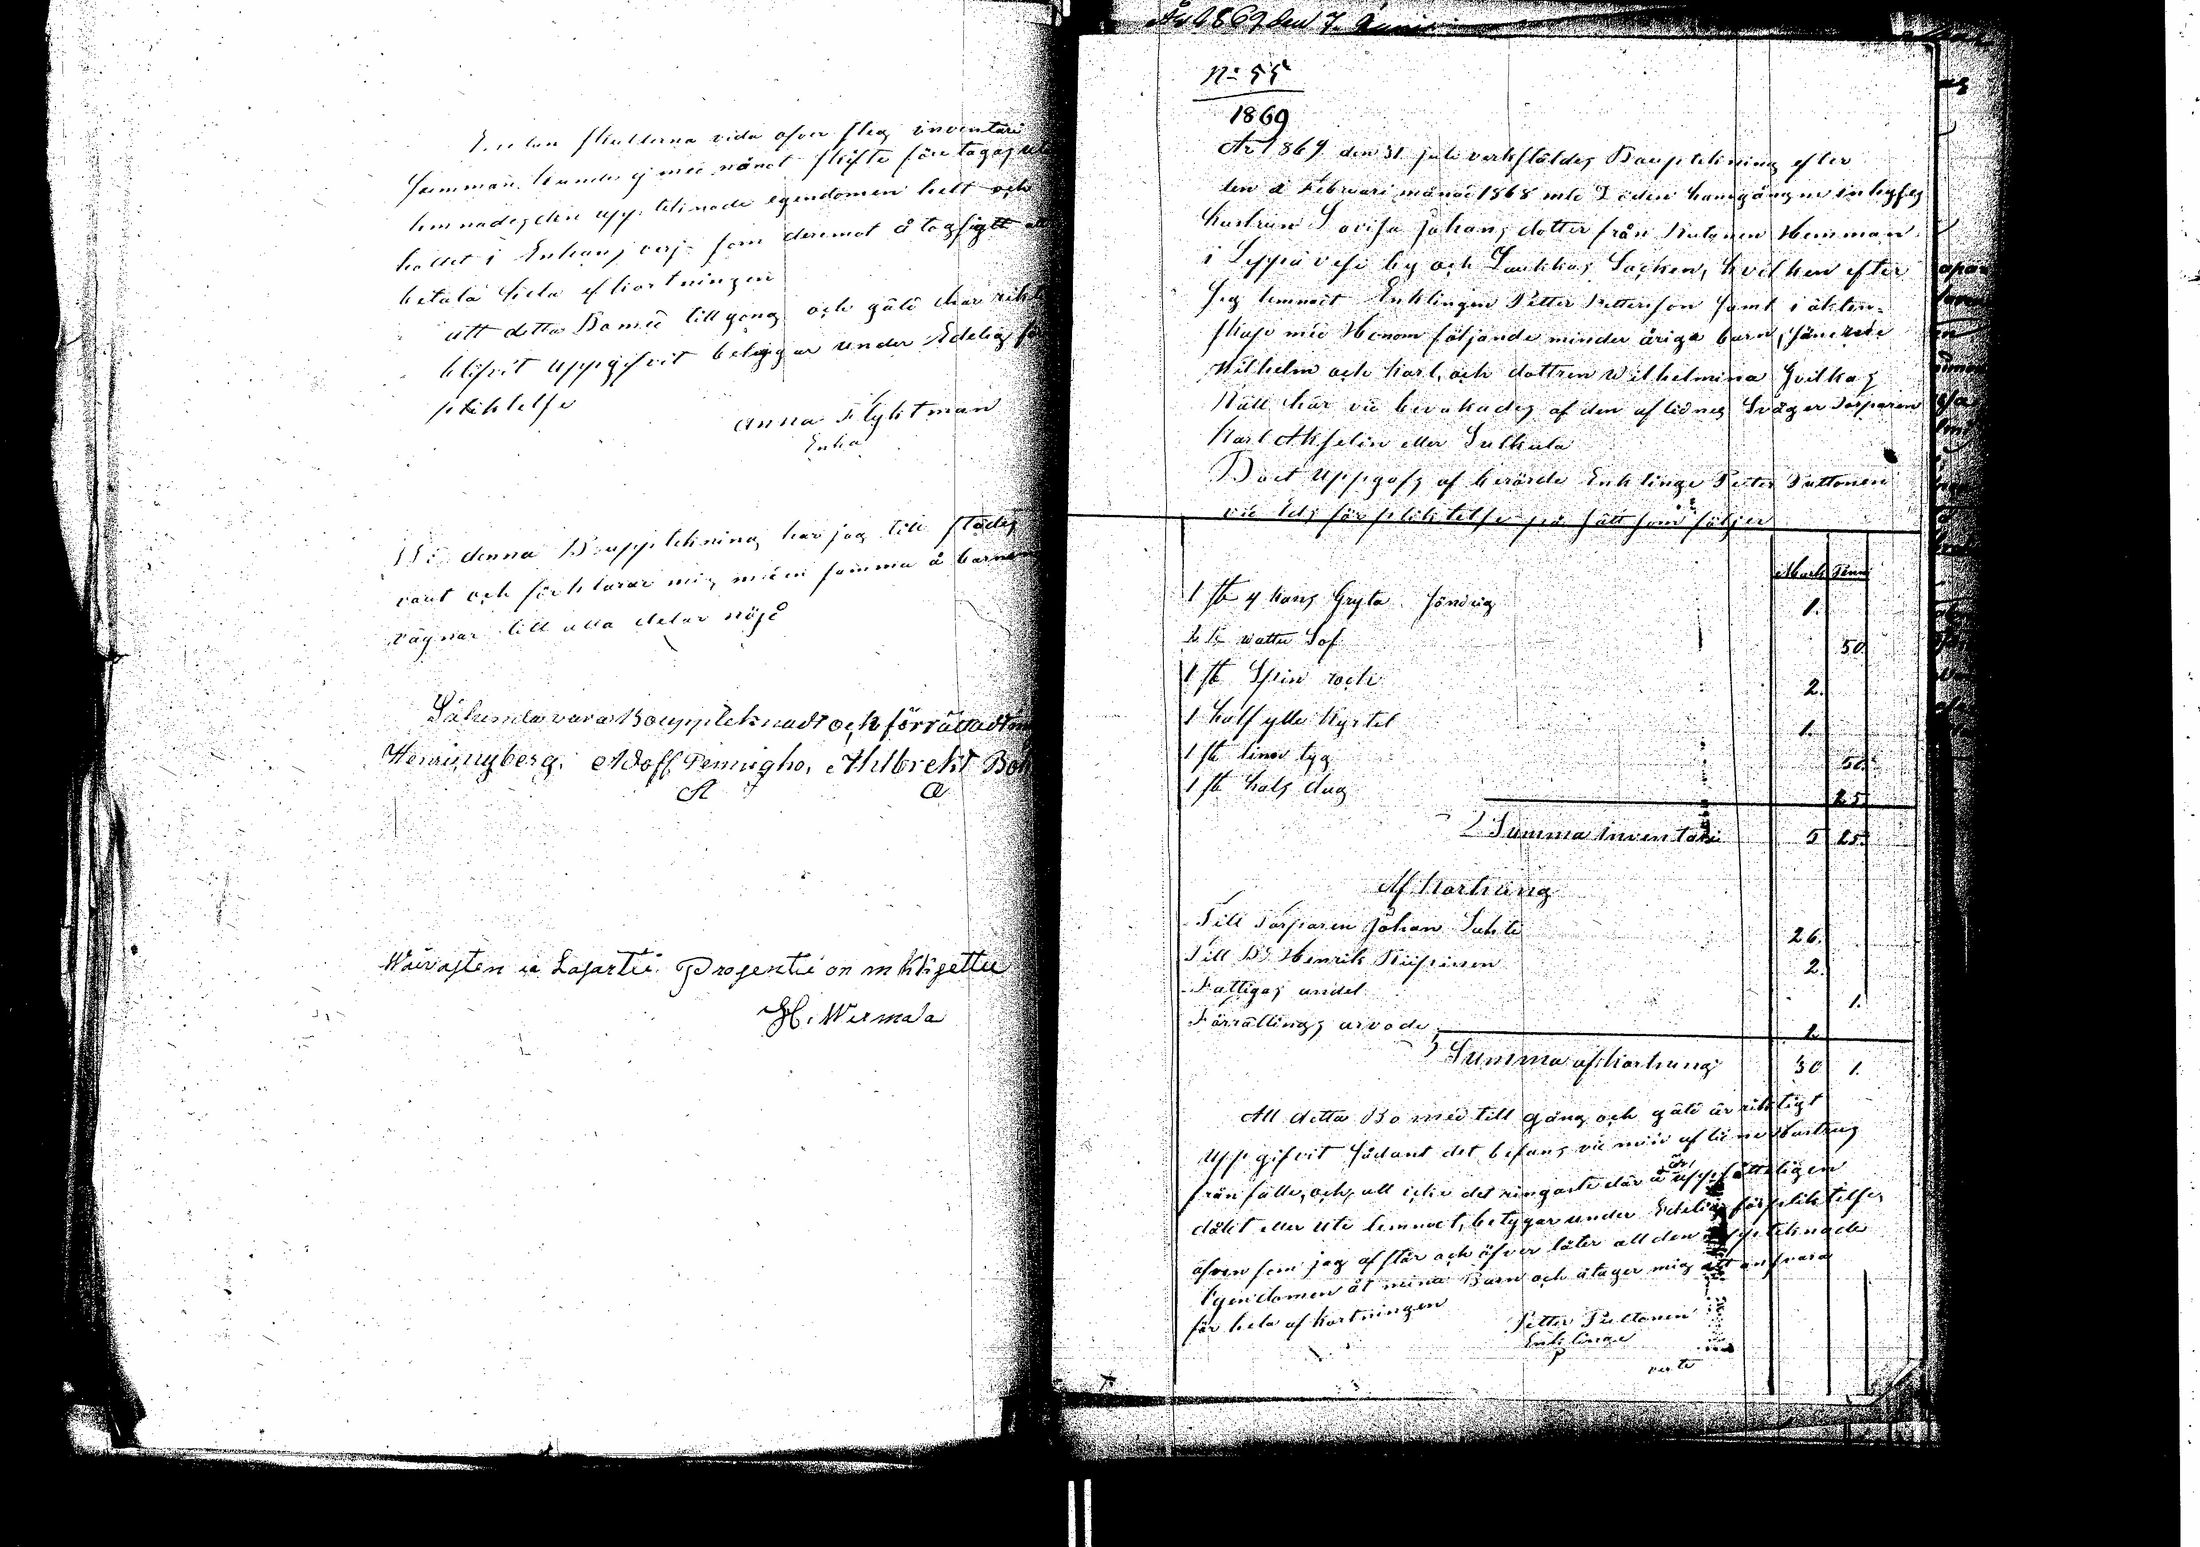 skullerna vida öfver steg inventari
summan kunde ej med nånot skifte före tagas
lemnades den upp teknade egendomen helt och
hollet i Enkans verjo som deremot å tog sig att
betala hela afkortningen
att detta Bo med till gong och gäld har
blifvit uppgifvit betygar under Edelig
pliktelse
Anna Flyktman
Enka
Vid denna Boupptekning har jag till städes
varit och förklarar mig med samma å barnens
vägnar till alla delar nöjd
Sålunda vara Bouppteknadt och förrättadt
Henri Nyberg. Adolf Ahlbrekt
A
Waivasten ja Lasartti Prosentti on maksettu
H. Wermala
År 1869 den 7. Junii
No 55
1869
År 1869 den 31 juli verkstäldes Bouptekning efter
den i Februari månad 1868 med Döden hamgångne inhyses
hustrun Lovisa Johans dotter från Hemman
i Leppävesi by och Laukkas Socken, hvilken efter
sig lemnat Enklingen Petter Petterson samt i äkten-
skap med Honom följande minder åriga barn, sönerne
Wilhelm och Karl, och dottren Wilhelmina hvilkas
Rätt här vid bevakades af den aflidnes Svåger Torparen
Karl Akselin eller Sulkula
Boet uppgafs af berörde Enklinge Petter Puttonen
vid Eds förpliktelse på sätt som följer
Mark Penni
1 st 4 kans Gryta söndrig 1.
2 st watten Sof 50.
1 st Spin rock 2.
1 half ylle Kjrtel 1.
1 st linne tyg 50.
1 st hals dug 25
Summa inventari 5 25.
Afkortning
Till Torparen Johan Suhte 26.
Till Do Henrik Kiipinen 2.
Fattigas andel 1.
Förrättings arvode 2
Summa afkortning 30 1.
Att detta Bo med till gång och gäld är riktigt
uppgifvit sådant det befans vid min aflidne Hustrus
från fälle, och att icke det ringaste där å är uppsåtteligen
dålt eller ute lemnat, betygar under Edelig förpliktelse,
äfven som jag afstår och öfver låter all den uppteknade
Egendomen åt mina Barn och åtager mig att ansvara
för hela afkortningen
Petter Puttonen
Enklinge
P
verte